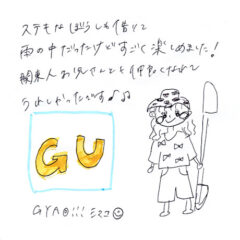 ステキなぼうしも借りて
雨の中だったけどすごく楽しめました！
関東人お兄さんとも仲良くなれて
うれしかったです♪♪
GU
GYA@!!! ミマコ☺